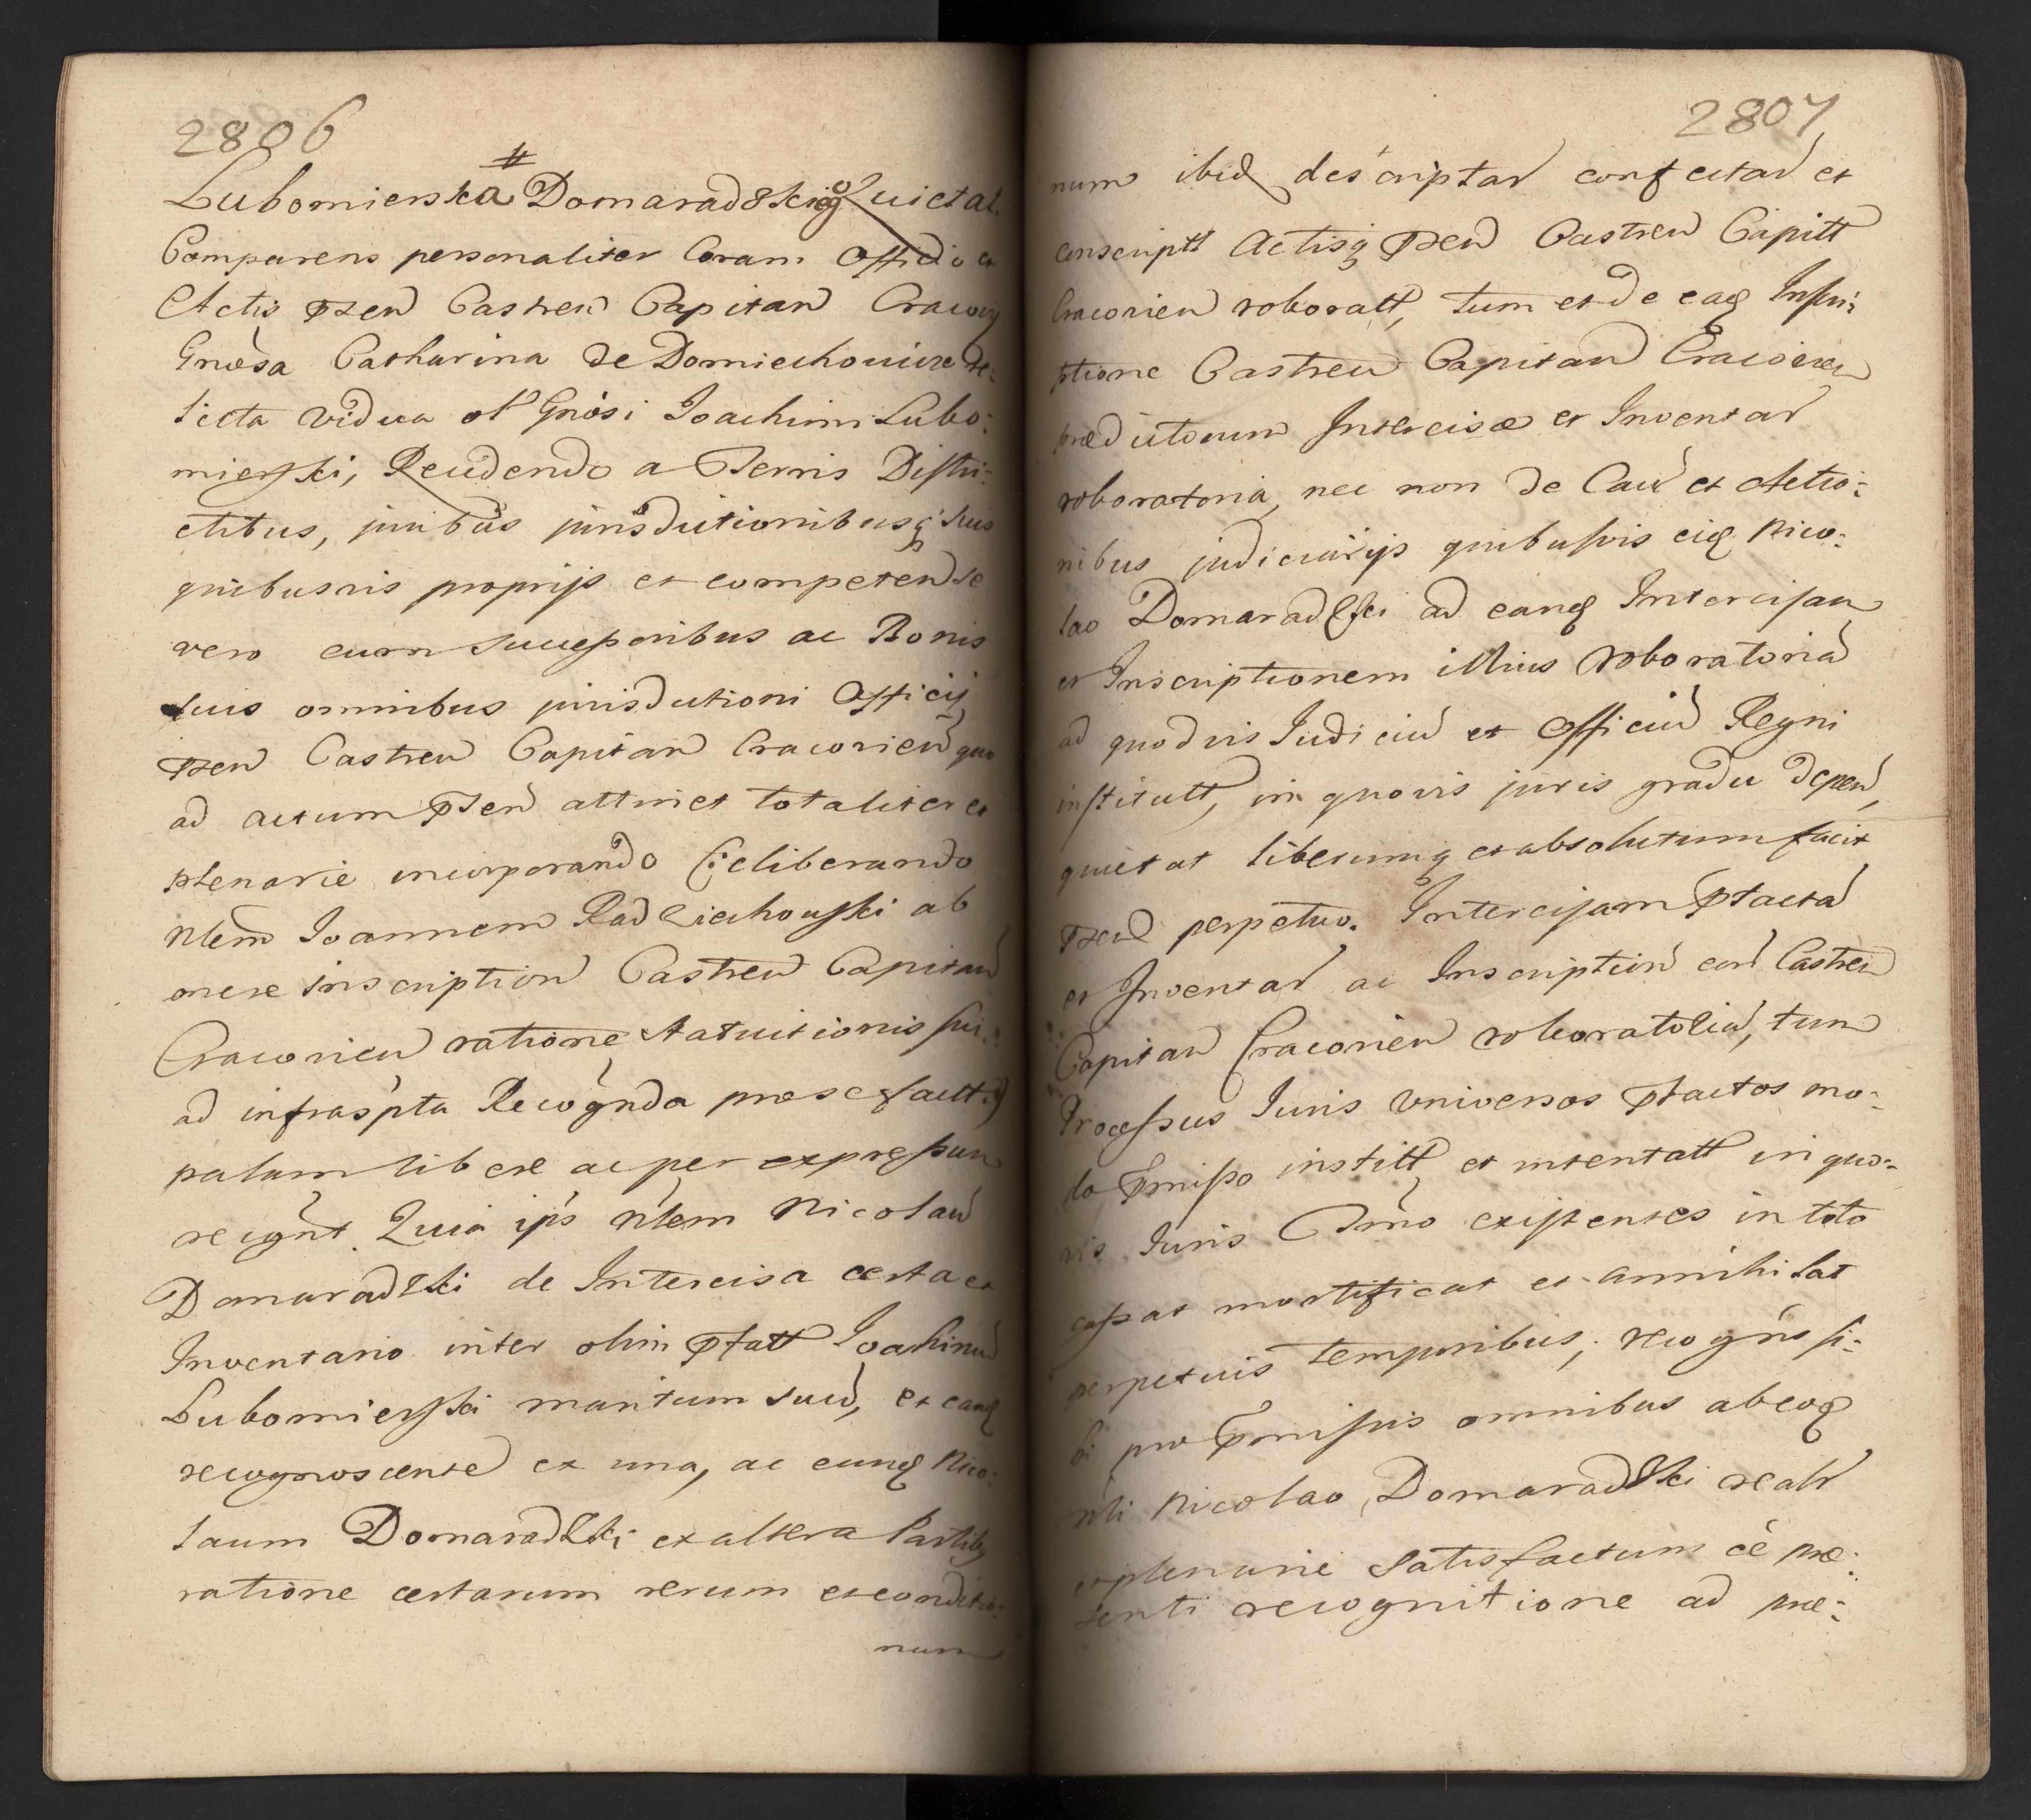 2806
Lubomierska Domaradzkiego Quietat
Comparens personaliter Coram Officio et
Actis pzen Castren Capitan Cracovien
Gnosa Catharina de Domiechowice re:
licta vidua ol Gnosi Joachimi Lubo:
mierski, Recedendo a Terris Distri:
ctibus, juribus jurisdictionibusq suis
quibusvis proprijs et competen se
vero cum successoribus ac Bonis
suis omnibus jurisdictioni Officij
pzen Castren Capitan Cracovien quo
ad actum pzen attinet totaliter et
plenarie incorporando (:eliberando
Nlem Joannem Radziechowski ab
onere inscription Castren Capitan
Cracovien ratione statuitionis sui
ad infrascpta Recognda prose fact:)
palam libere ac per expressum
recognt Quia ips Nlem Nicolau
Domaradzki de Intercisa certa et
Inventario inter olim pfatt Joachimu
Lubomierski maritum suu, et eand
recognoscente ex una, ac eund Nico:
laum Domaradzki ex altera Partibq
ratione certarum rerum et conditio:
num
2807
num ibid descriptar confectar et
conscriptt Actisq pzen Castren Capitt
Cracovien roboratt, tum et de ead Inscri:
ptione Castren Capitan Cracovien
prædictorum Intercisæ et Inventar
roboratoria, nec non de Caus et Actio:
nibus judiciarijs quibusvis eid Nico:
lao Domaradzki ad eand Intercisam
et Inscriptionem illius roboratoria
ad quodvis Judiciu et Officiu Regni
institutt, in quovis juris gradu depen,
quietat liberumq et absolutum facit
pzen perpetuo. Intercisam pfacta
et Inventar ac Inscription ear Castren
Capitan Cracovien roboratoria, tum
Processus Juris universos pfactos mo:
do pmisso institt et intentatt in quo:
vis Juris Tmino existentes in toto
cassat mortificat et annihilat
perpetuis temporibus, recogns si:
bi pro pmissis omnibus ab eod
Nli Nicolao Domaradzki realr
et plenarie satisfactum ee præ:
senti recognitione ad præ: